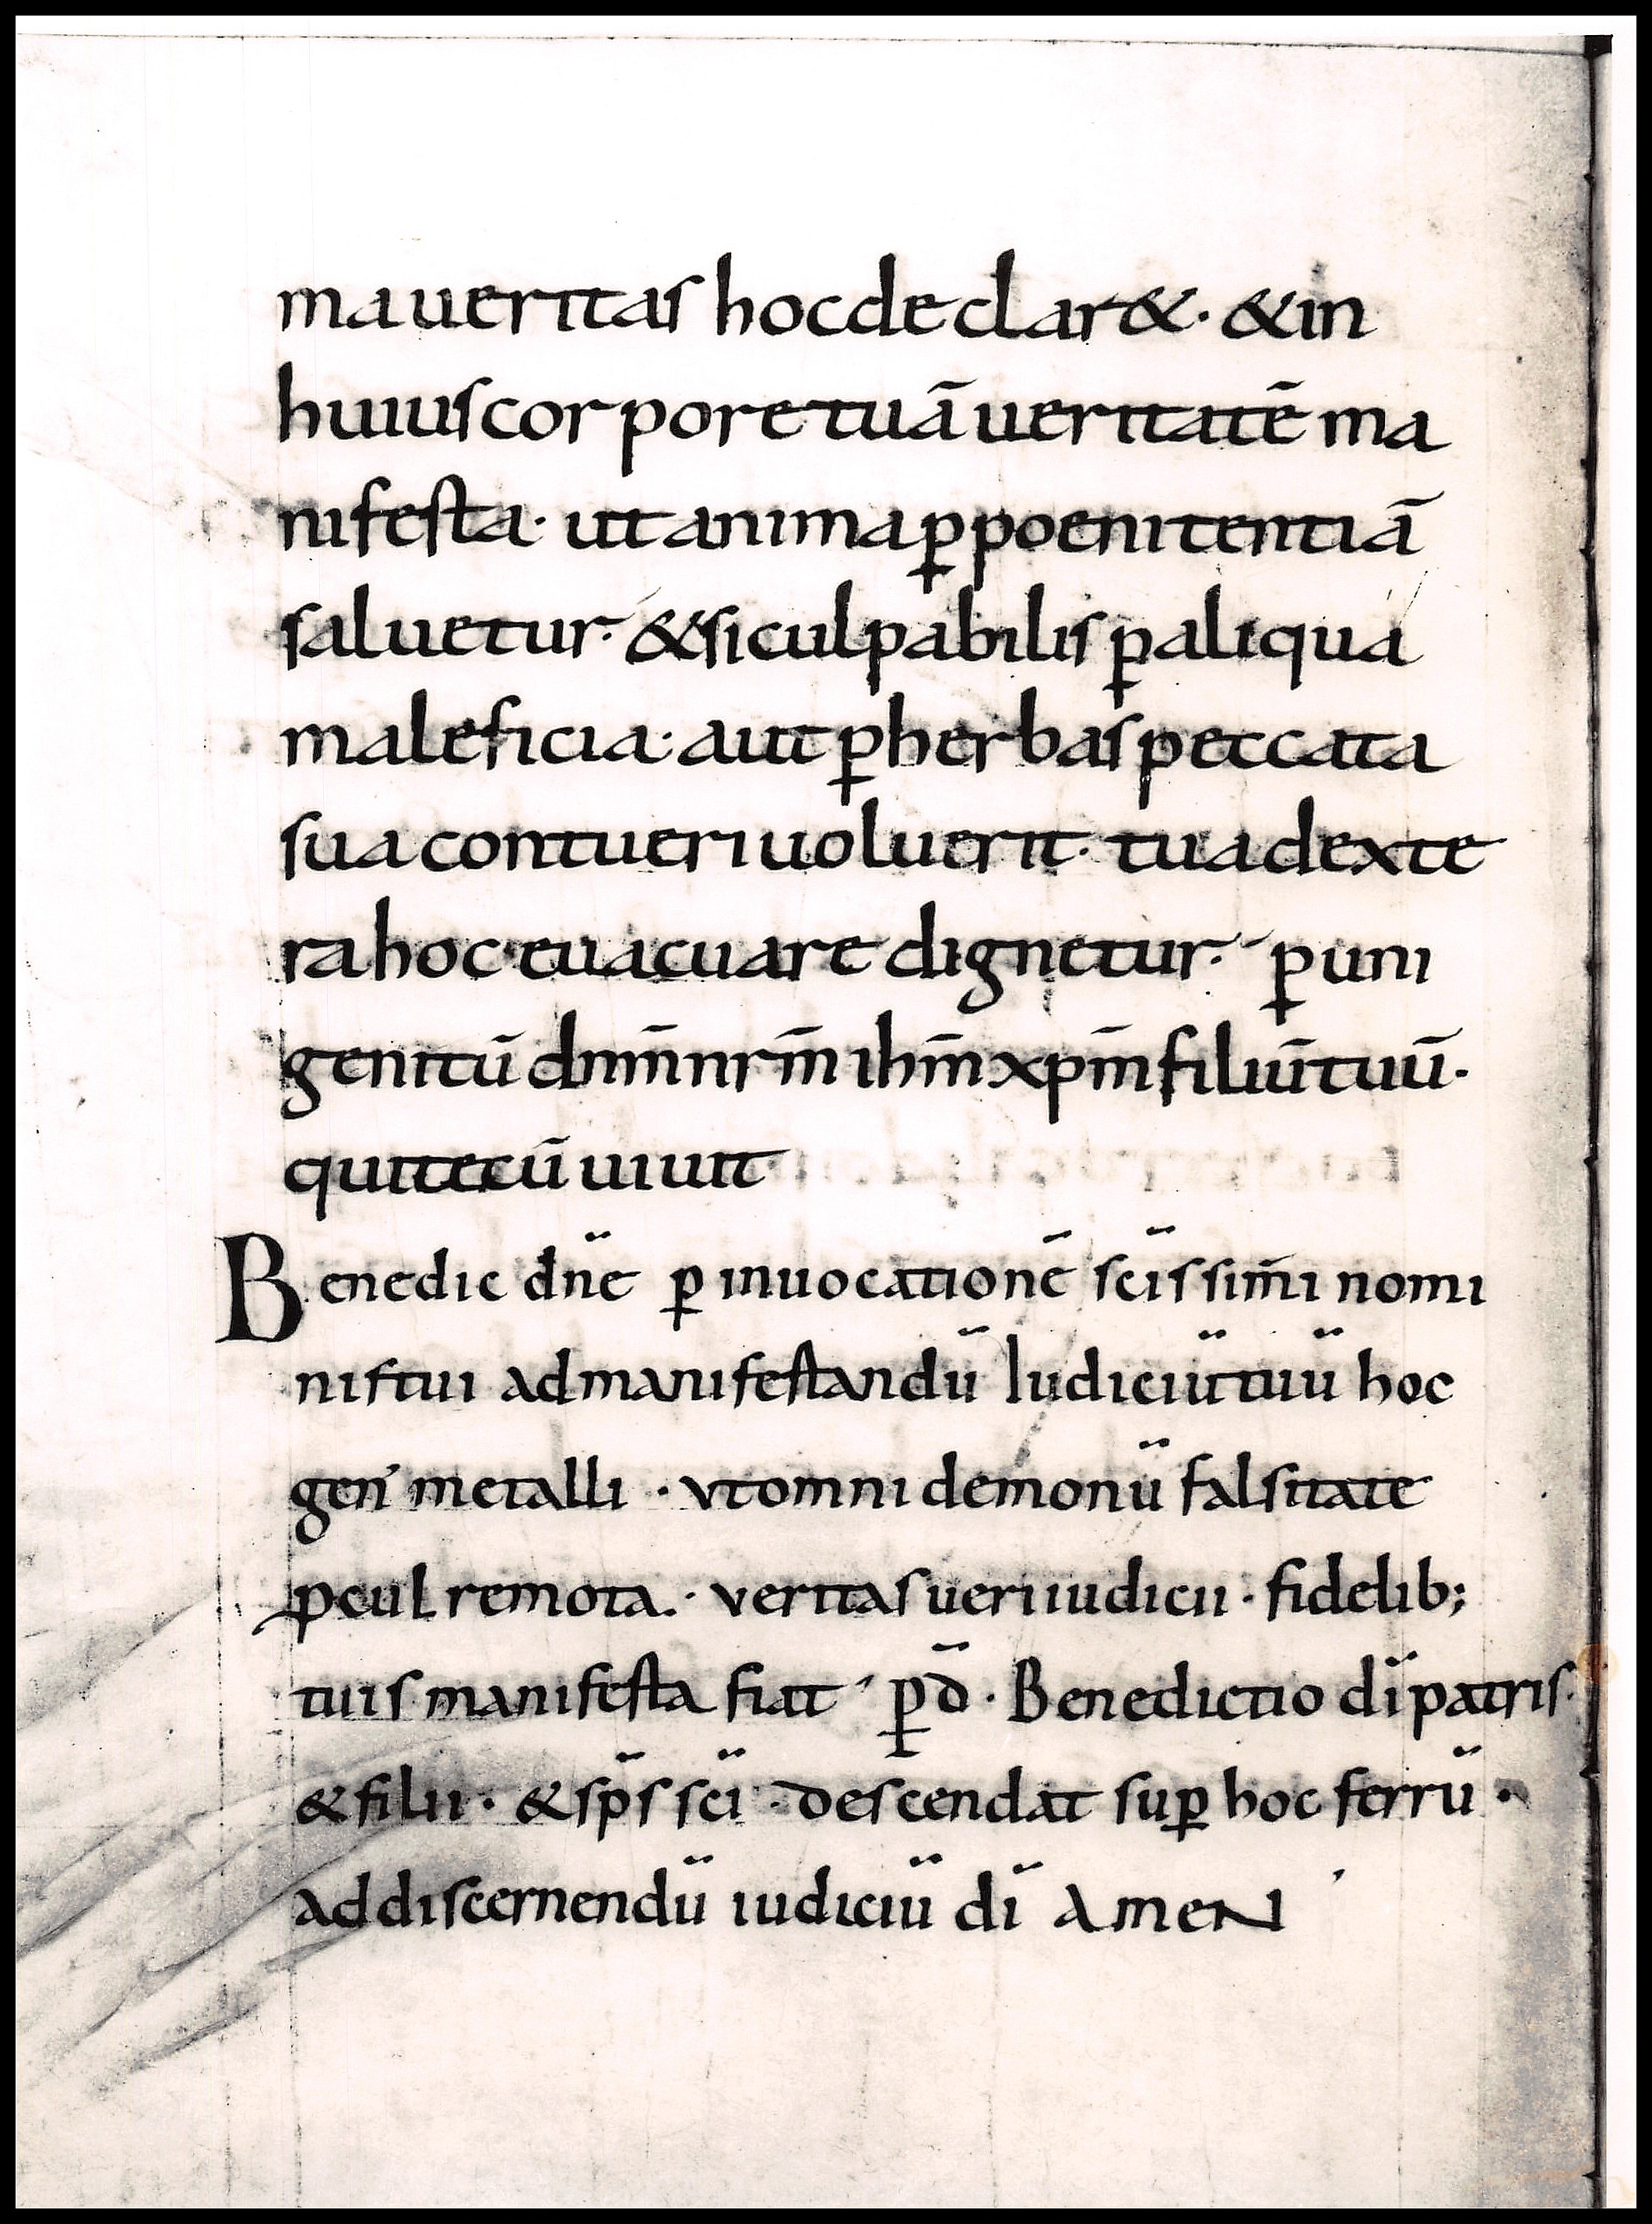 ma ueritas hoc declar&. & in
huius corpore tuā ueritatē ma
nifesta· ut anima ꝑ poenitentiā
saluetur. & si culpabilis ꝑ aliqua
maleficia· aut ꝑ herbas peccata
sua contueri uoluerit· tua dexte
ra hoc euacuare dignetur. ꝑ uni
genitū dn̄m nr̄m ihm̄ xpm̄ filiū tuū.
qui tecū uiuit
Benedic dn̄e ꝑ inuocationē sc̄issim̄i nomi
nis tui ad manifestandū Iudiciū tuū hoc
gen' metalli · vt omni demonū falsitate
ꝓcul remota · veritas ueri iudicii · fidelib;
tuis manifesta fiat ꝑ d̄ · Benedictio dī patris·
& filii · & sp̄s sc̄i · descendat suꝑ hoc ferrū ·
ad discernendū iudiciū dī AmeN